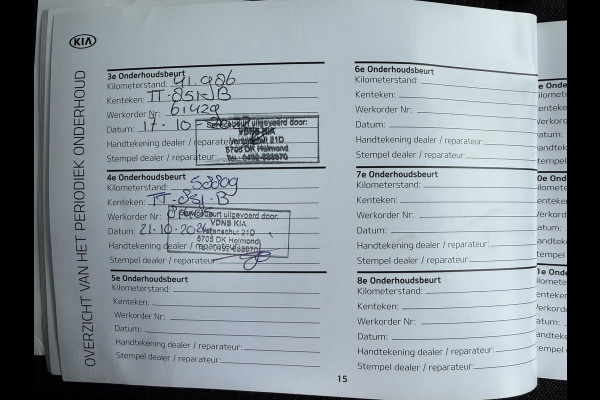 KIA
OVERZICHT VAN HET PERIODIEK ONDERHOUD
3e Onderhoudsbeurt
Kilometerstand: 41.986
Kenteken:
Werkorder Nr: 61429
Datum: 17-10-
Handtekening dealer / reparateur:
Stempel dealer / reparateur:
Servicebeurt uitgevoerd door:
VDNS KIA
21D
5705 DK Helmond
4e Onderhoudsbeurt
Kilometerstand:
Kenteken:
Werkorder Nr:
Datum: 21-10-2024
Handtekening dealer / reparateur:
Stempel dealer / reparateur:
Servicebeurt uitgevoerd door:
VDNS KIA
21D
5705 DK Helmond
5e Onderhoudsbeurt
Kilometerstand:
Kenteken:
Werkorder Nr:
Datum:
Handtekening dealer / reparateur:
Stempel dealer / reparateur:
6e Onderhoudsbeurt
Kilometerstand:
Kenteken:
Werkorder Nr:
Datum:
Handtekening dealer / reparateur:
Stempel dealer / reparateur:
7e Onderhoudsbeurt
Kilometerstand:
Kenteken:
Werkorder Nr:
Datum:
Handtekening dealer / reparateur:
Stempel dealer / reparateur:
8e Onderhoudsbeurt
Kilometerstand:
Kenteken:
Werkorder Nr:
Datum:
Handtekening dealer / reparateur:
Stempel dealer / reparateur:
15